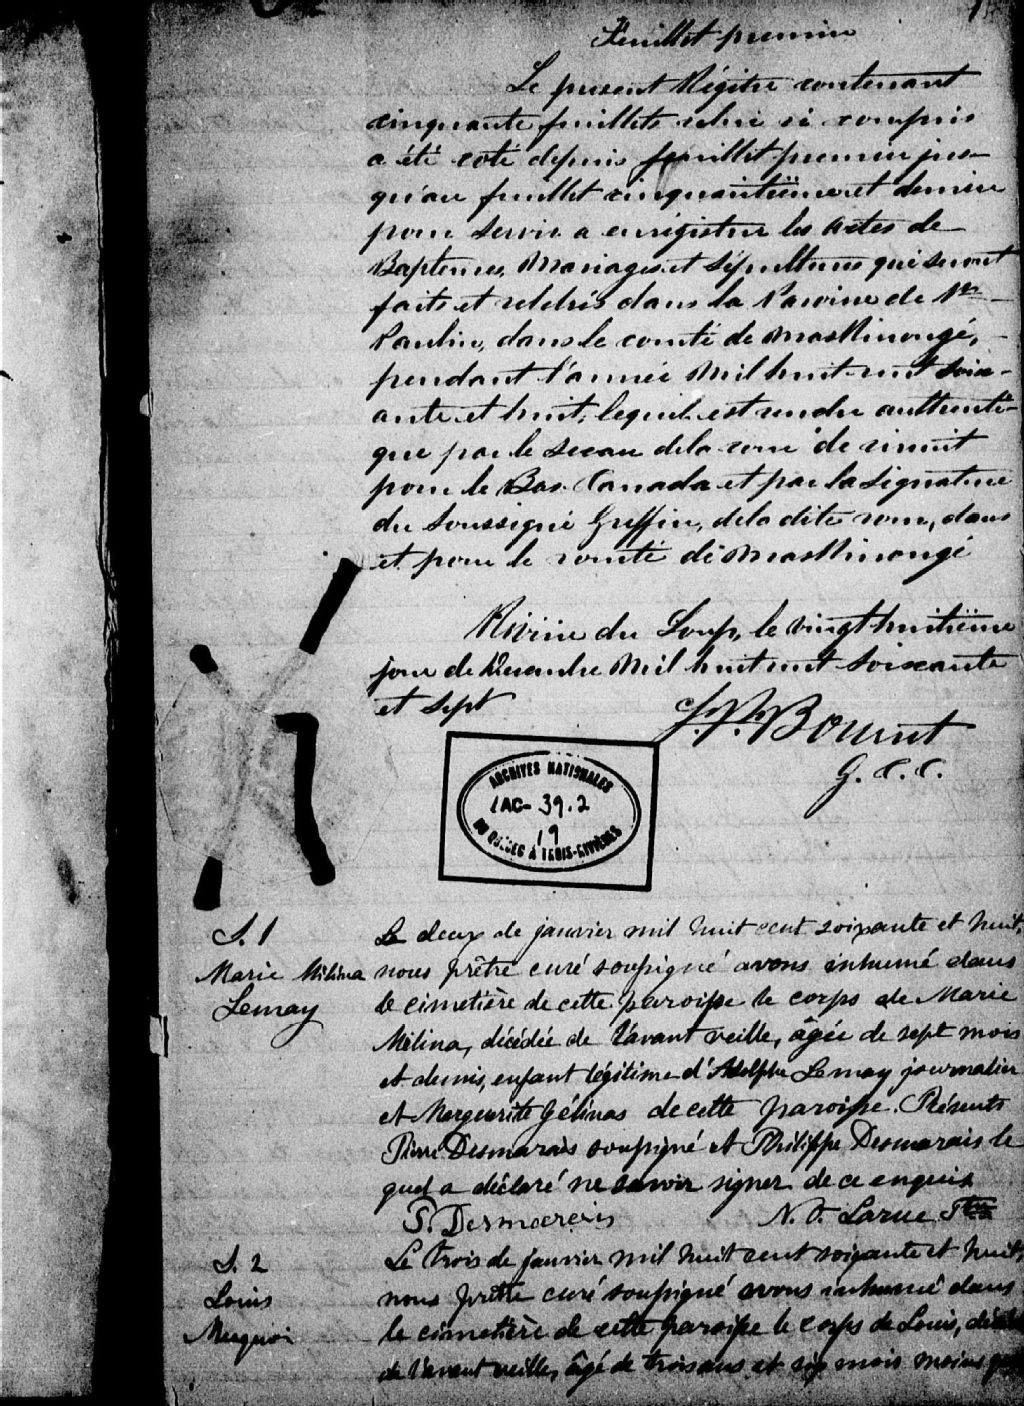 Feuillet premier
Le present Régitre contenant
cinquante feuillets celui ci compris
a été coté depuis feuillet premier jus-
qu'au feuillet cinquantième et dernier
pour servir a enrégistrer les actes de
Baptemes, Mariages et Sépultures qui seront
faits et célébrés dans la Paroisse de St
Paulin, dans le comté de Maskinongé,
pendant l'année mil huit cent soix-
ante et huit, lequel est rendu authenti-
que par le sceau de la cour de circuit
pour le Bas-Canada et par la signature
du Soussigné Greffier, de la dite cour, dans
et pour le comté de Maskinongé
Rivière du Loup, le vingt huitième
jour de Décembre mil huit cent soixante
et sept
G. C. C.
ARCHIVES NATIONALES
IAC- 39.2
19
DU QUÉBEC À TROIS-RIVIÈRES
S. 1
Marie Mélina
Lemay
Le deux de janvier mil huit cent soixante et huit,
nous prêtre curé soussigné avons inhumé dans
le cimetière de cette paroisse le corps de Marie
Mélina, décédée de l'avant veille, âgée de sept mois
et demis, enfant légitime d'Adolphe Lemay journalier
et Marguerite Gélinas de cette paroisse. Présents
Pierre Desmarais soussigné et Philippe Desmarais le
quel a déclaré ne savoir signer de ce enquis
P. Desmarais N. O. Larue Ptre
S. 2
Louis
Le trois de janvier mil huit cent soixante et huit,
nous prêtre curé soussigné avons inhumé dans
le cimetière de cette paroisse le corps de Louis, décédé
de l'avant veille, âgé de trois ans et six mois moins